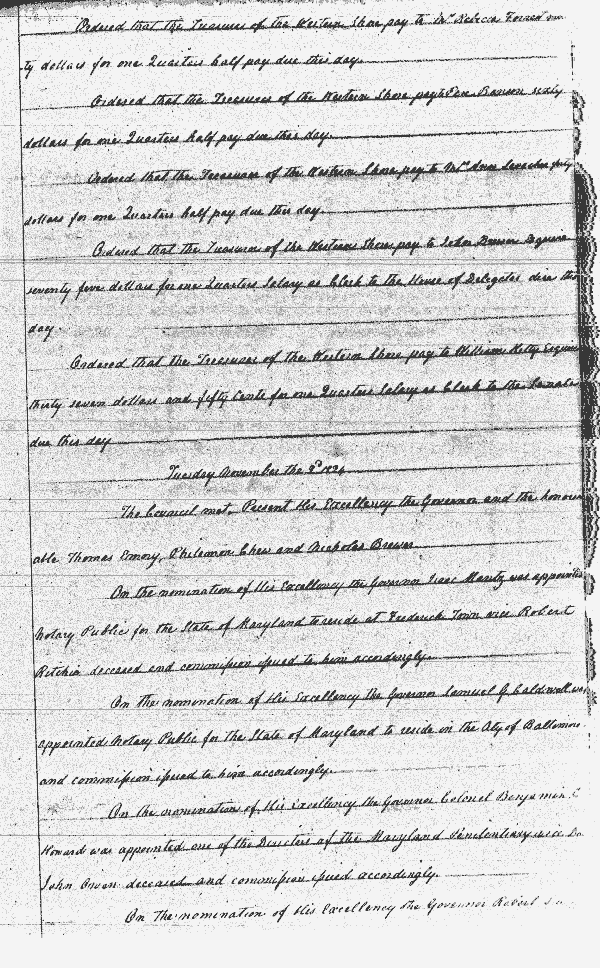 Ordered that the Treasurer of the Western Shore pay to Mrs Rebecca
ty dollars for one Quarters half pay due this day.
Ordered that the Treasurer of the Western Shore pay to Perre Benson sixty
dollars for one Quarters half pay due this day.
Ordered that the Treasurer of the Western Shore pay to Mrs Ann forty
dollars for one Quarters half pay due this day.
Ordered that the Treasurer of the Western Shore pay to John Brewer Esquire
seventy five dollars for one Quarters Salary as Clerk to the House of Delegates due this
day
Ordered that the Treasurer of the Western Shore pay to William Kelty Esquire
thirty seven dollars and fifty Cents for one Quarters Salary as Clerk to the Senate
due this day
Tuesday November the 2d 1824
The Council met. Present His Excellency the Governor and the honour
able Thomas Emory, Philemon Chew and Nicholas Brewer
On the nomination of His Excellency the Governor Isaac Mantz was appointed
Notary Public for the State of Maryland to reside at Frederick Town vice Robert
Ritchie deceased and commission issued to him accordingly.
On the nomination of His Excellency the Governor Samuel J Caldwell was
appointed Notary Public for the State of Maryland to reside in the City of Baltimore
and commission issued to him accordingly.
On the nomination of His Excellency the Governor Colonel Benjamin C
Howard was appointed one of the Directors of the Maryland Penitentiary vice
John Owen deceased and commission issued accordingly.
On the nomination of His Excellency the Governor Robert